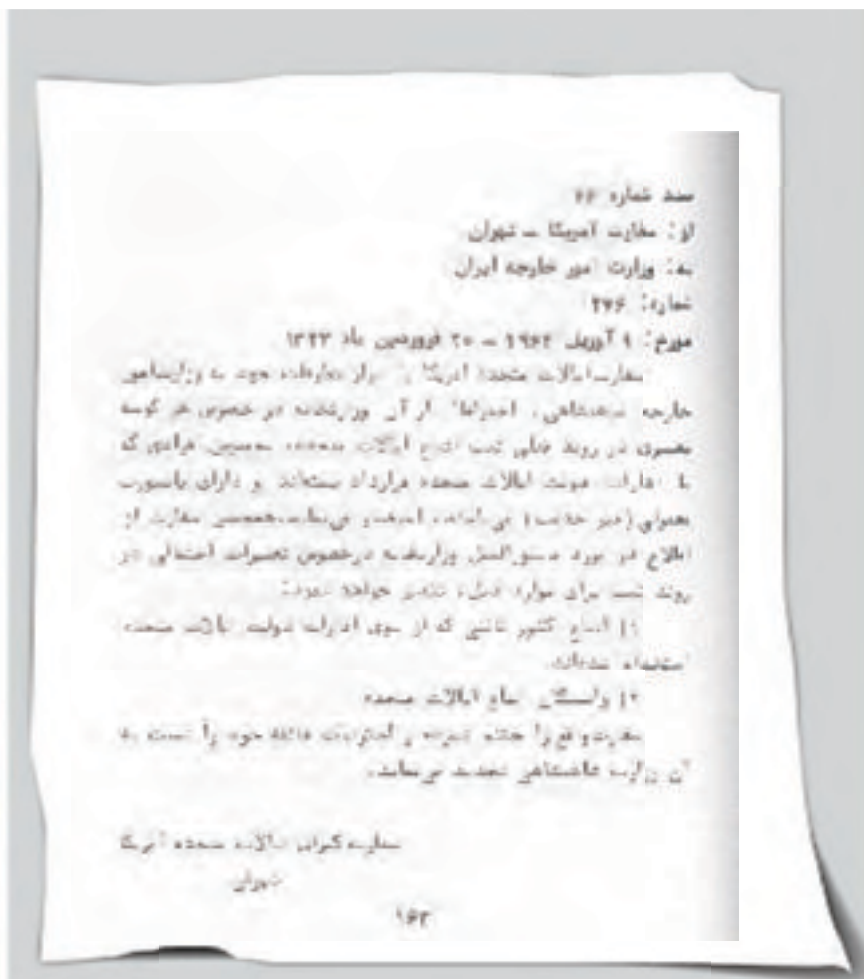 سند شماره ۶۶
از: سفارت آمریکا ـ تهران
به: وزارت امور خارجه ایران
شماره: ۲۷۶
مورخ: ۹ آوریل ۱۹۶۴ ـ ۲۰ فروردین ماه ۱۳۴۳
سفارت ایالات متحده آمریکا با ابراز تعارفات خود به وزارت امور
خارجه شاهنشاهی، احتراماً از آن وزارتخانه در خصوص هر گونه
تغییری در روند فعلی ثبت اتباع ایالات متحده، همچنین افرادی که
با ادارات دولت ایالات متحده قرارداد بسته‌اند و دارای پاسپورت
معمولی (غیر خدمت) می‌باشند،
اطلاع در مورد دستورالعمل وزارتخانه درخصوص تغییرات احتمالی در
روند ثبت برای موارد ذیل، تقدیر خواهد نمود:
۱) اتباع کشور ثالثی که از سوی ادارات دولت ایالات متحده
استخدام شده‌اند.
۲) وابستگان اتباع ایالات متحده
سفارت موقع را مغتنم شمرده و احترامات فائقه خود را نسبت به
آن وزارت شاهنشاهی تجدید می‌نماید.
سفارت کبرای ایالات متحده آمریکا
تهران
۱۶۳